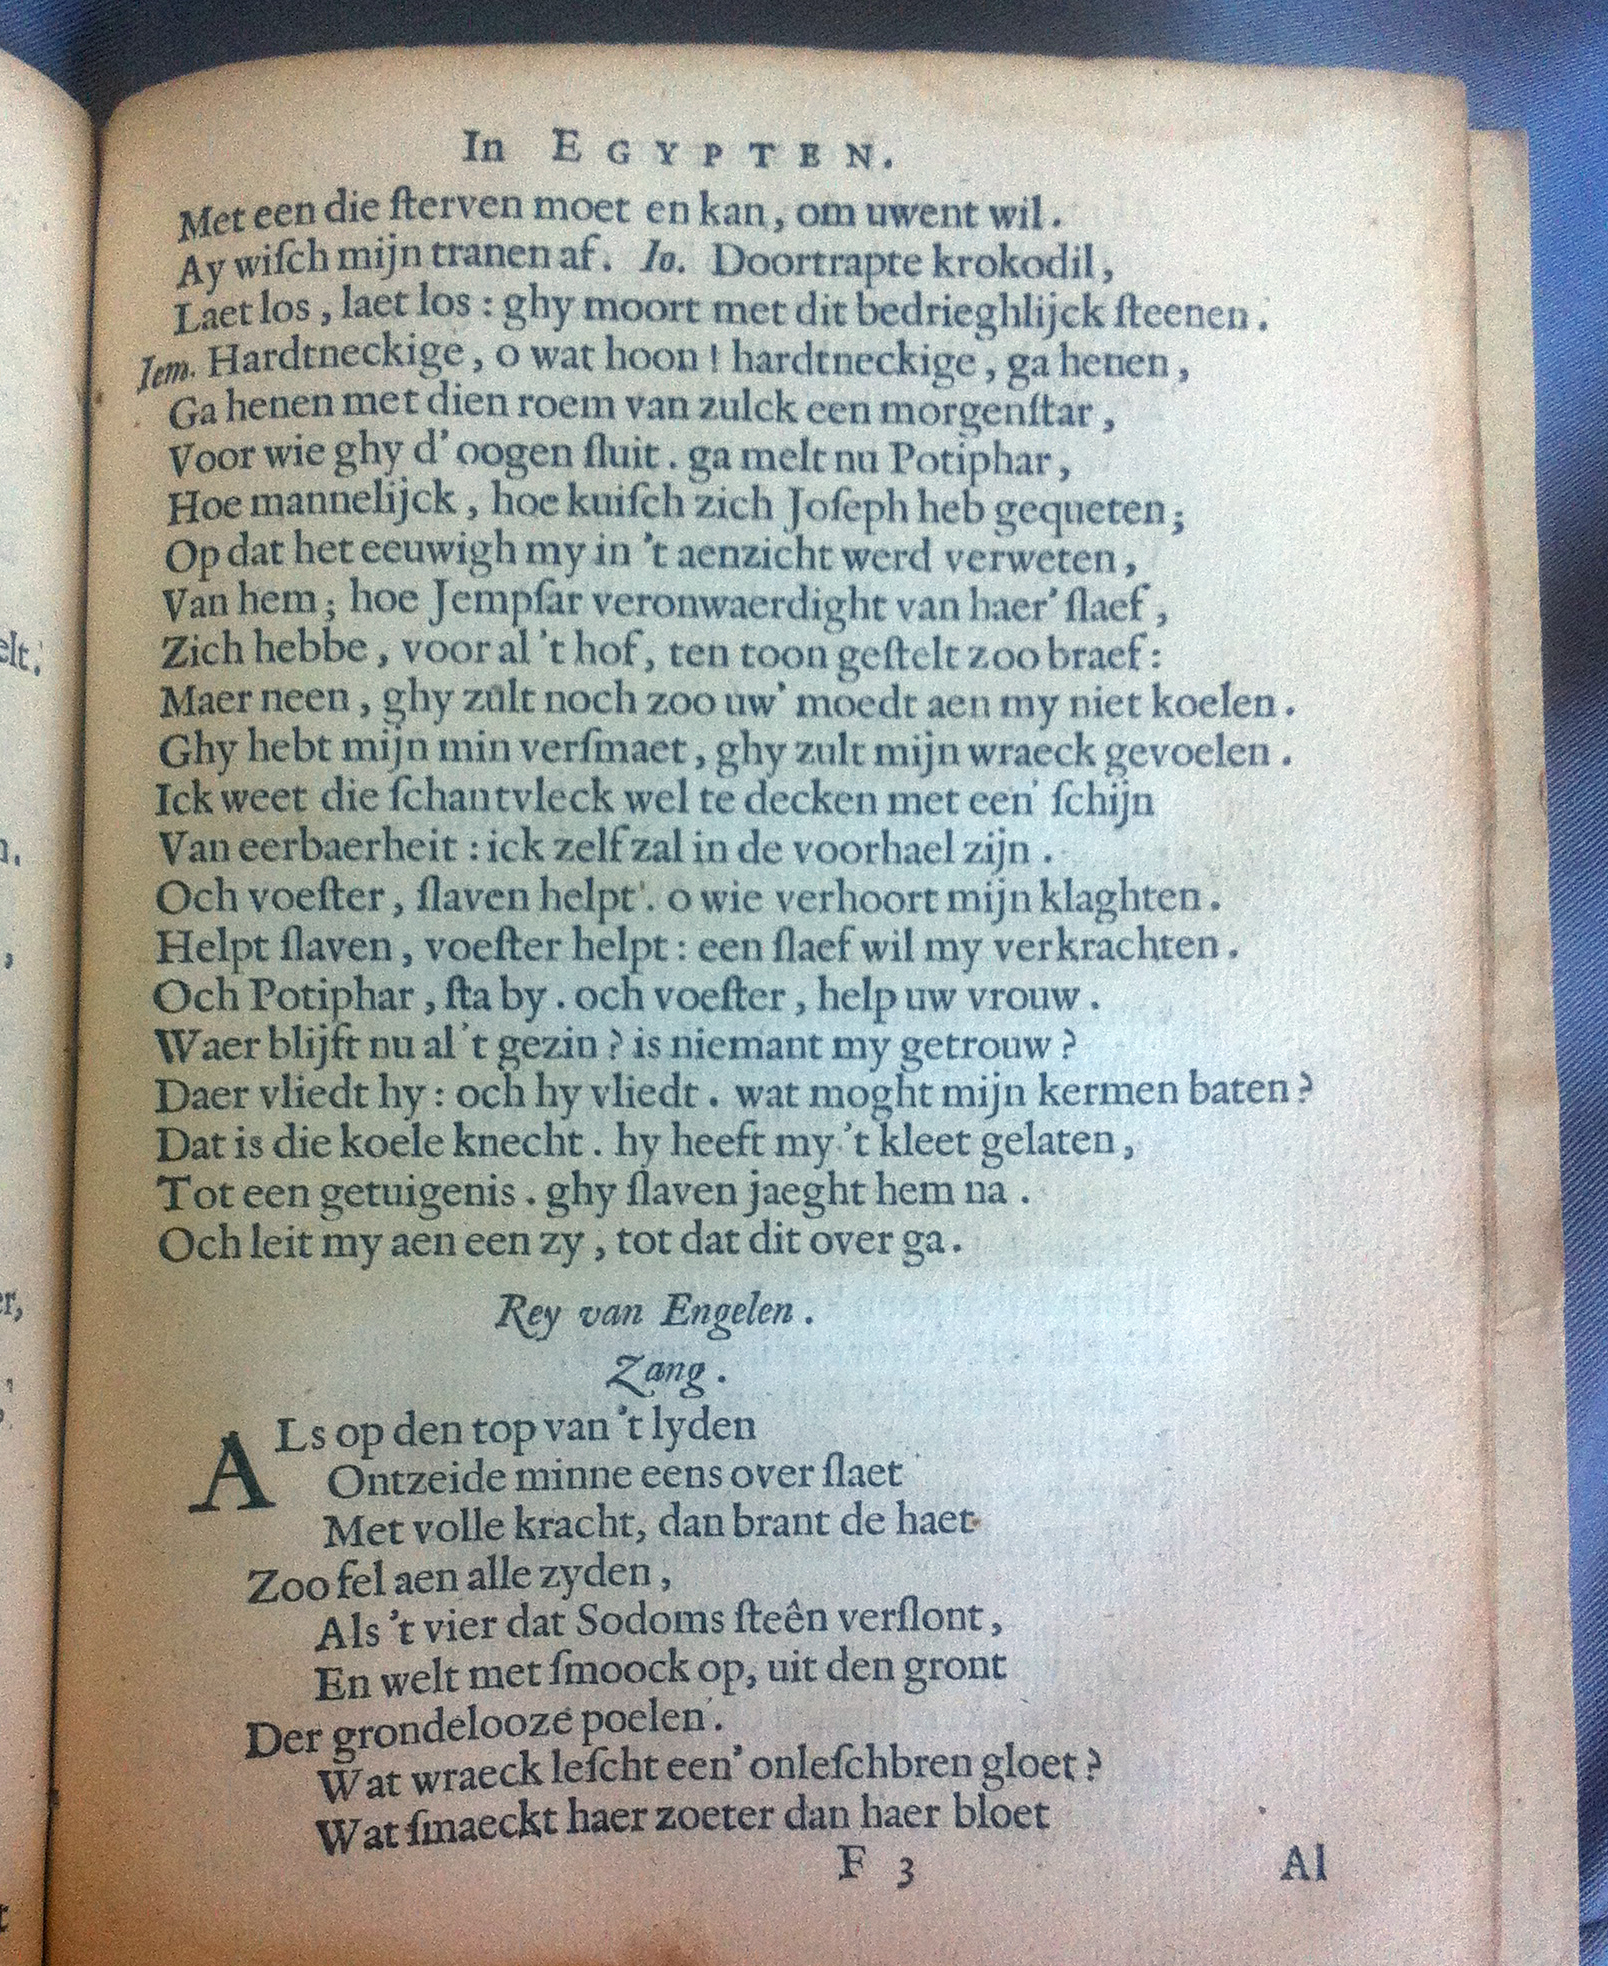 In EGYPTEN.
Met een die ſterven moet en kan, om uwent wil.
Ay wiſch mijn tranen af. Io. Doortrapte krokodil,
Laet los, laet los: ghy moort met dit bedrieghlijck ſteenen.
Iem. Hardtneckige, o wat hoon! hardtneckige, ga henen,
Ga henen met dien roem van zulck een morgenſtar,
Voor wie ghy d'oogen ſluit. ga melt nu Potiphar,
Hoe mannelijck, hoe kuiſch zich Joſeph heb gequeten;
Op dat het eeuwigh my in 't aenzicht werd verweten,
Van hem; hoe Jempſar veronwaerdight van haer' ſlaef,
Zich hebbe, voor al 't hof, ten toon geſtelt zoo braef:
Maer neen, ghy zult noch zoo uw' moedt aen my niet koelen.
Ghy hebt mijn min verſmaet, ghy zult mijn wraeck gevoelen.
Ick weet die ſchantvleck wel te decken met een' ſchijn
Van eerbaerheit: ick zelf zal in de voorhael zijn.
Och voeſter, ſlaven helpt'. o wie verhoort mijn klaghten.
Helpt ſlaven, voeſter helpt: een ſlaef wil my verkrachten.
Och Potiphar, ſta by. och voeſter, help uw vrouw.
Waer blijft nu al 't gezin? is niemant my getrouw?
Daer vliedt hy: och hy vliedt. wat moght mijn kermen baten?
Dat is die koele knecht. hy heeft my 't kleet gelaten,
Tot een getuigenis. ghy ſlaven jaeght hem na.
Och leit my aen een zy, tot dat dit over ga.
Rey van Engelen.
Zang.
ALs op den top van 't lyden
Ontzeide minne eens over ſlaet
Met volle kracht, dan brant de haet
Zoo fel aen alle zyden,
Als 't vier dat Sodoms ſteên verſlont,
En welt met ſmoock op, uit den gront
Der grondelooze poelen.
Wat wraeck leſcht een' onleſchbren gloet?
Wat ſmaeckt haer zoeter dan haer bloet
F 3 Al
elt,
er,